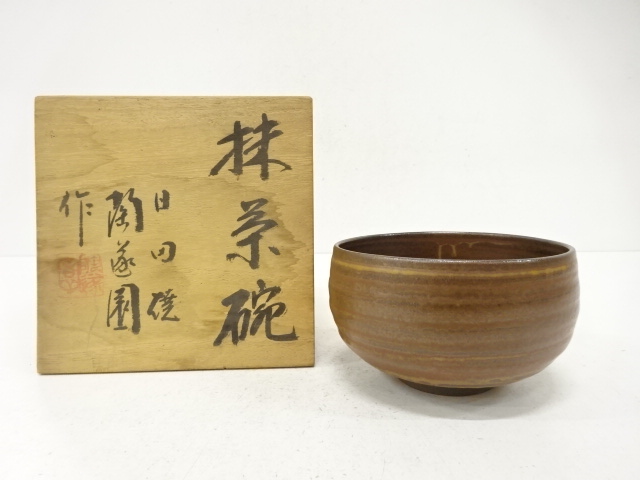 抹茶碗
日田焼
陶遊園
作